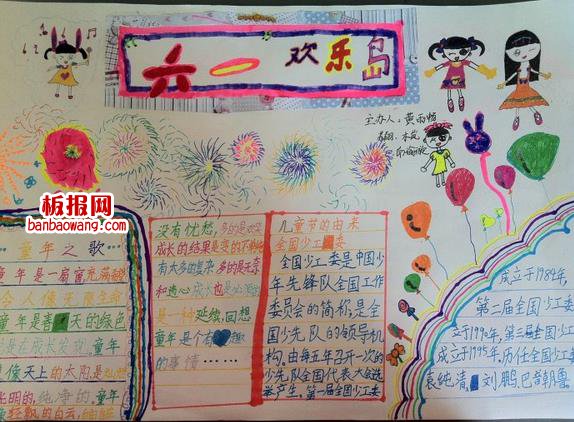 六一欢乐岛
主办人：黄雨情
板报网
banbaowang.com
童年之歌
童年是一扇窗充满
令人像无限生命
童年是春天的绿色
童年
像天上的太阳是灿烂
光明的，纯净的，童年
像轻飘的白云，
没有忧愁，多的是欢笑
成长的结果是变的不
有太多的复杂 多的是无奈
和违心 成长也是
是一种延续，回想
童年是个有趣
的事情……
儿童节的由来
全国少工委
全国少工委是中国少
年先锋队全国工作
委员会的简称，是全
国少先队的领导机
构，由每五年召开一次的
少先队全国代表大会选
举产生。第一届全国少工委
成立于1984年，
第二届全国少工委
立于1990年，第三届全国少工
成立于1995年，历任全国少工
袁纯清，刘鹏，巴音朝鲁